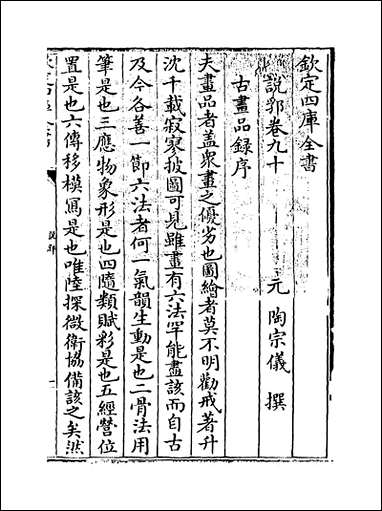 欽定四庫全書
說郛卷九十
元 陶宗儀 撰
古畫品録序
夫畫品者蓋衆畫之優劣也圖繪者莫不明勸戒著升
沈千載寂寥披圖可見雖畫有六法罕能盡該而自古
及今各善一節六法者何一氣韻生動是也二骨法用
筆是也三應物象形是也四隨類賦彩是也五經營位
置是也六傳移模寫是也唯陸探微衛協備該之矣然
說郛
一